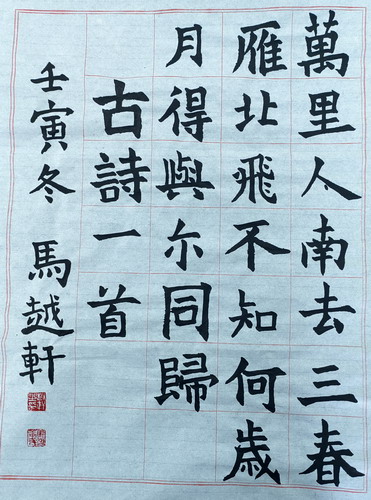 萬里人南去三春
雁北飛不知何歲
月得與尒同歸
古詩一首
壬寅冬 馬越軒